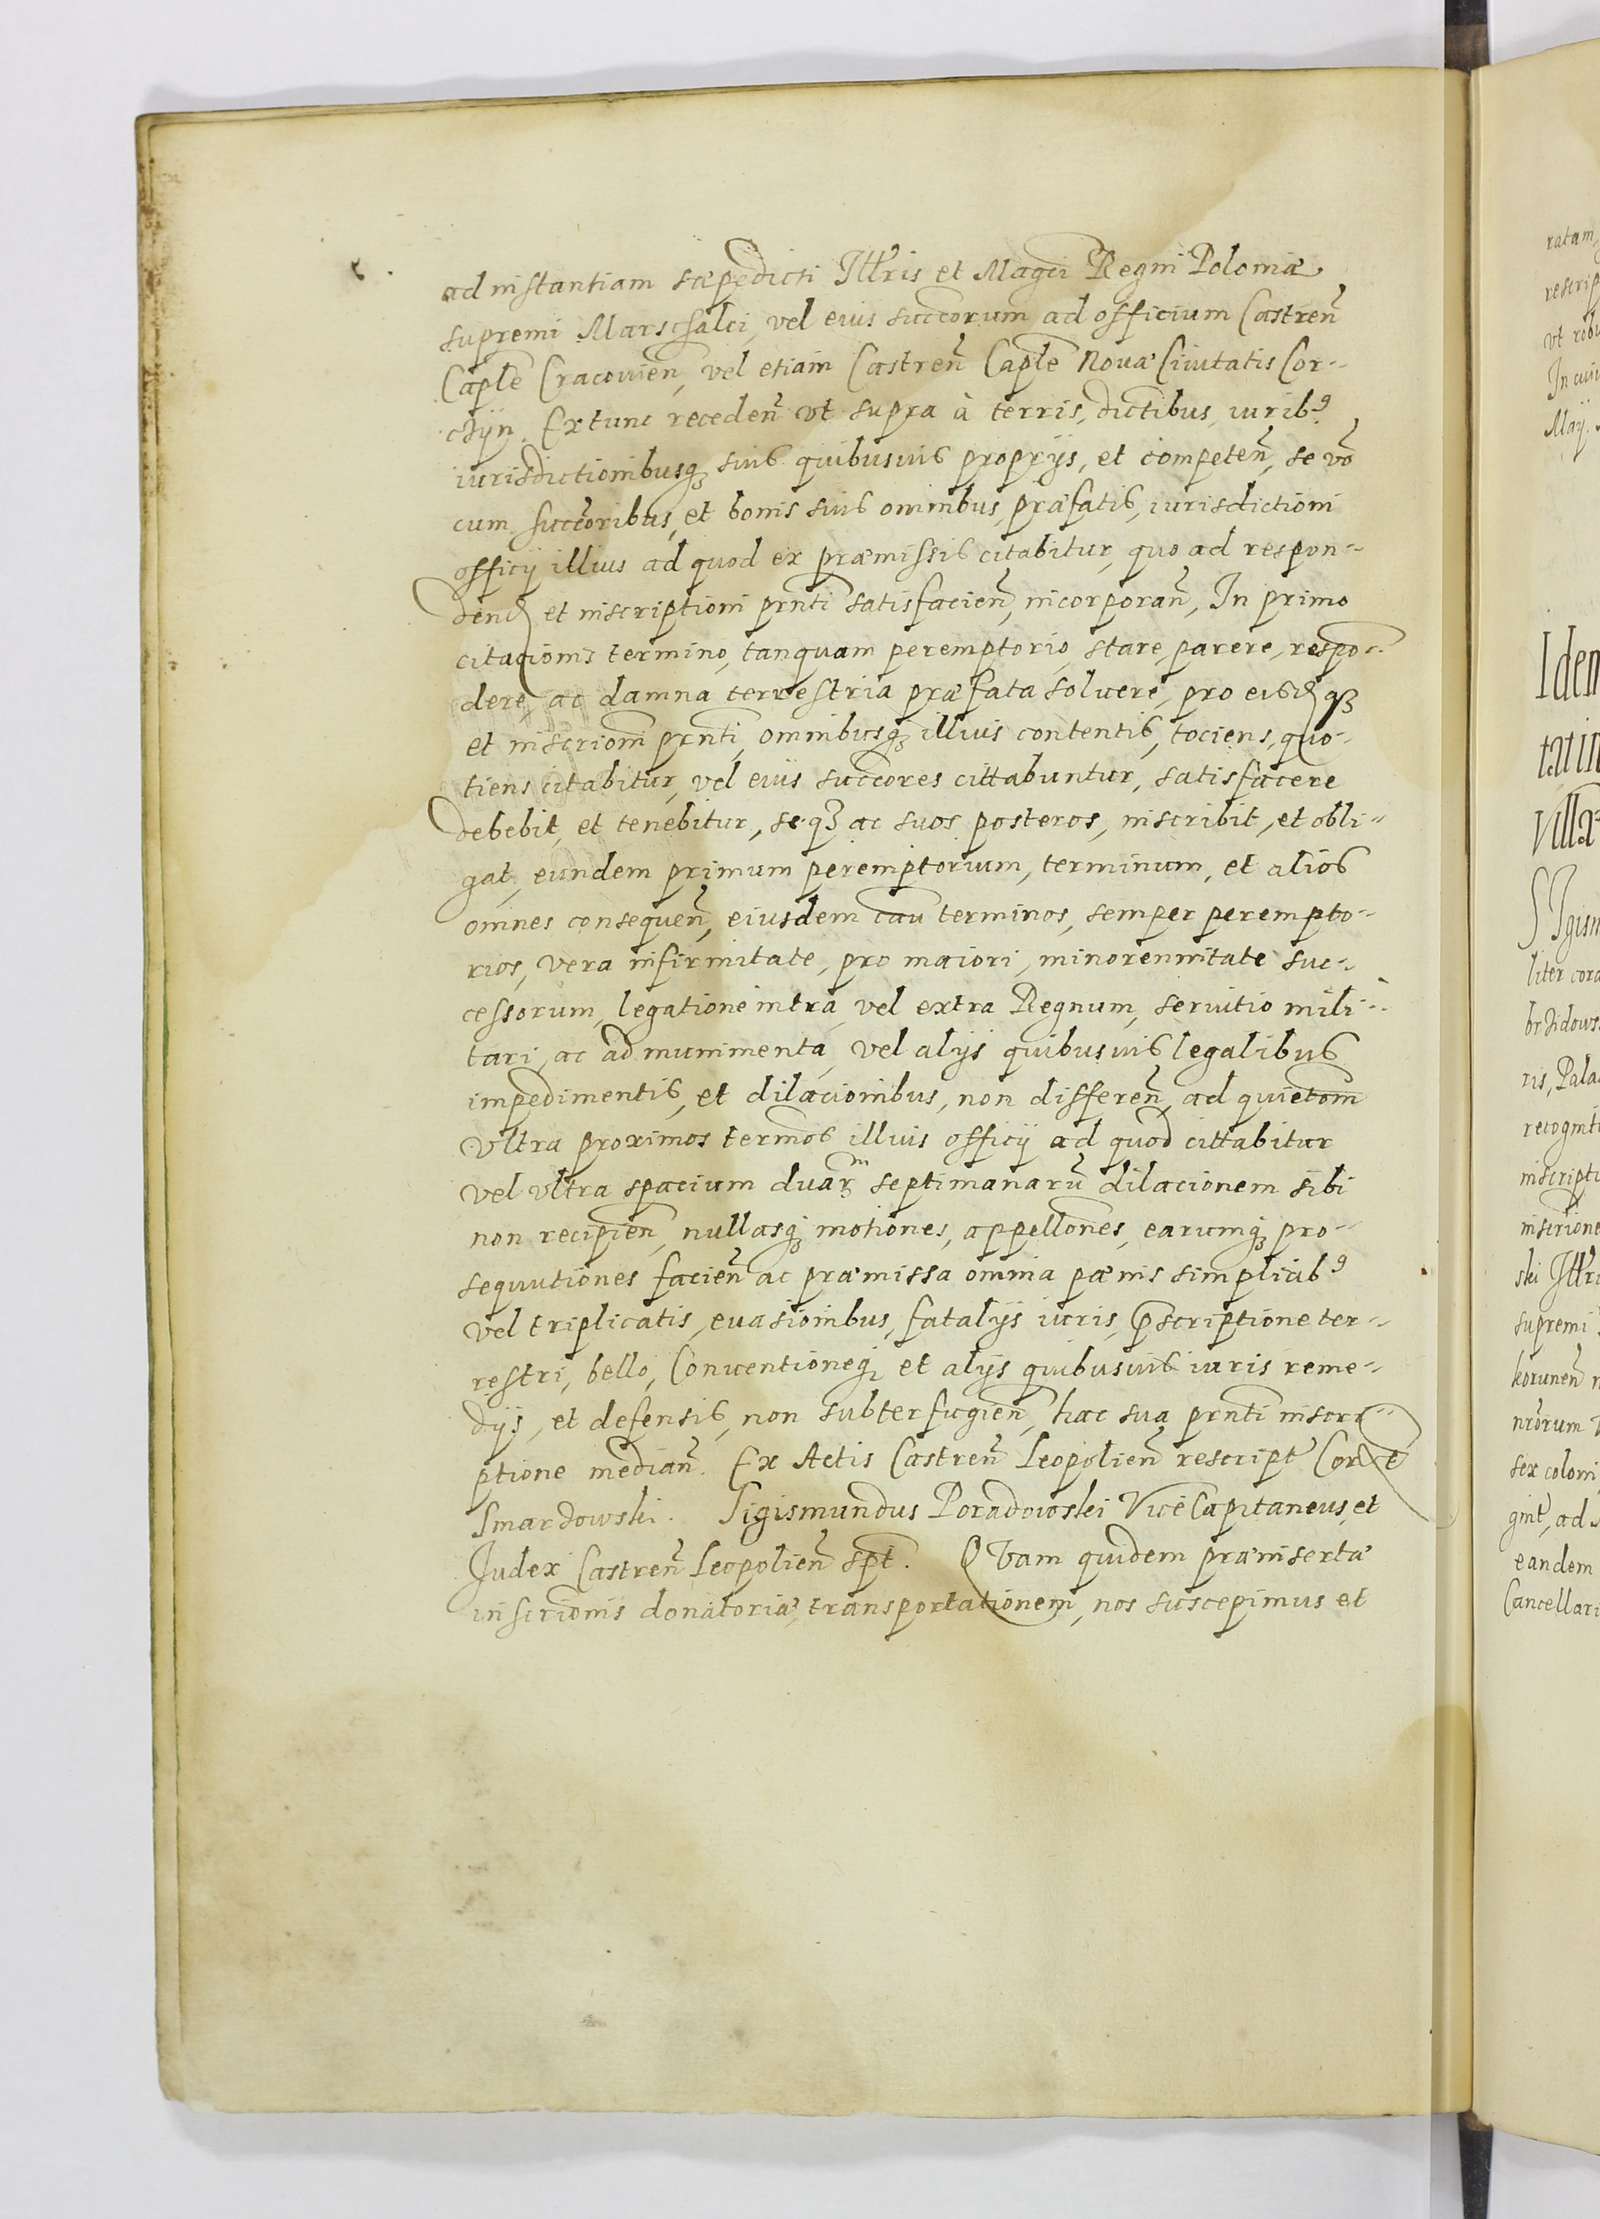 ad instantiam sæpedicti Illris et Magci Regni Poloniæ
supremi Marschalci, vel eius succorum ad officium Castreñ
Caplẽ Cracovieñ, vel etiam Castreñ Caplẽ Novæ Civitatis Cor-
chijn. Extunc recedeñ vt supra à terris, dictibus, iurib9
iurisdictionibusq3 suis quibusuis proprijs, et competeñ, se võ
cum succoribus, et bonis suis omnibus, præfatis, iurisdictioni
officij illius ad quod ex præmissis citabitur, quo ad respon-
dend et inscriptioni prnti satisfacieñ, incorporañ, In primo
citacionis termino, tanquam peremptorio, stare, parere, respõ-
dere, ac damna terrestria præfata soluere, pro eisd q3
et inscriom prnti, omnibusq3 illius contentis, tociens, quo-
tiens citabitur, vel eius succores cittabuntur, satisfacere
debebit, et tenebitur, se q3 ac suos posteros, inscribit, et obli-
gat, eundem primum peremptorium, terminum, et alios
omnes consequeñ, eiusdem cau terminos, semper perempto-
rios, vera infirmitate, pro maiori, minorennitate suc-
cessorum, legatione intra, vel extra Regnum, seruitio mili-
tari, ac ad munimenta, vel alijs quibusuis legalibus
impedimentis, et dilacionibus, non differeñ, ad quietom
vltra proximos termos illius officij ad quod cittabitur
vel vltra spacium duarm septimanarũ dilacionem sibi
non recipieñ, nullasq3 motiones, appellones, earumq3 pro-
sequutiones facieñ ac præmissa omnia pænis simplicib9
vel triplicatis, euasionibus, fatalijs iuris, p̃scriptione ter-
restri, bello, Conuentioneq3 et alijs quibusuis iuris reme-
dijs, et defensis, non subterfugieñ, hac sua prnti inscri-
ptione mediañ. Ex Actis Castreñ Leopolieñ rescript Cor-t
Smardowski. Sigismundus Poradowski ViceCapitaneus, et
Judex Castreñ Leopolieñ spt. QVam quidem præinsertæ
inscrionis donatoriæ, transportationem, nos suscepimus et
ratam,
rescrip
vt robu
In cuiu
Maij.
Idem
tatin
villæ
SIgism
liter cora
brzidows
ris, Pala
recogniti
inscripti
inscrione
ski Illri
supremi
koruneñ n
nrõrum
sex coloni
gint, ad
eandem
Cancellari